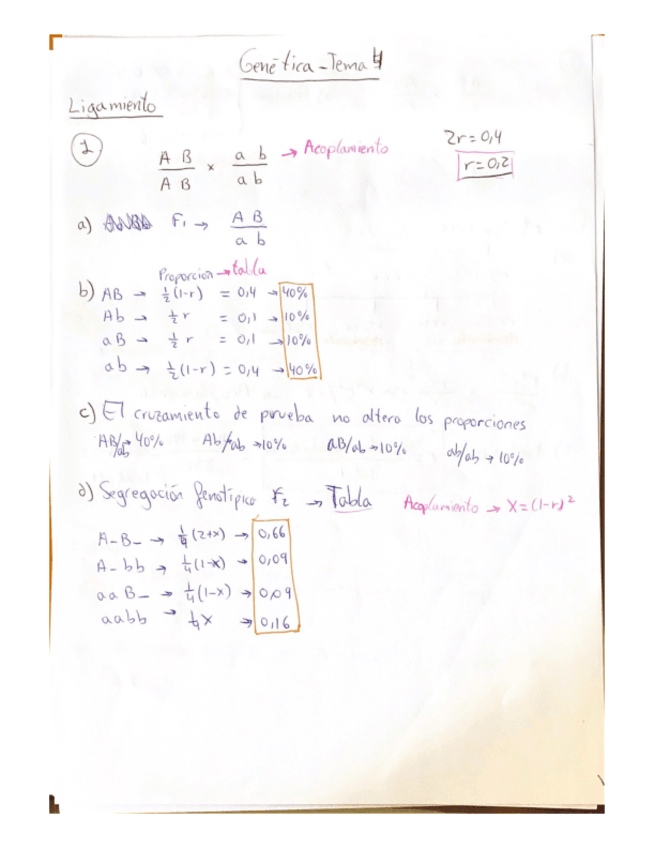 Genética - Tema 4
Ligamiento
1 A B / A B × a b / a b → Acoplamiento 2r = 0,4
r = 0,2
a) F₁ → A B / a b
Proporcion → tabla
b) AB → ½(1-r) = 0,4 → 40%
Ab → ½ r = 0,1 → 10%
aB → ½ r = 0,1 → 10%
ab → ½(1-r) = 0,4 → 40%
c) El cruzamiento de prueba no altera los proporciones
AB/ab → 40% Ab/ab → 10% aB/ab → 10% ab/ab → 10%
d) Segregación fenotípica F₂ → Tabla Acoplamiento → X = (1-r)²
A_B_ → ¼(2+x) → 0,66
A_bb → ¼(1-x) → 0,09
aaB_ → ¼(1-x) → 0,09
aabb → ¼x → 0,16